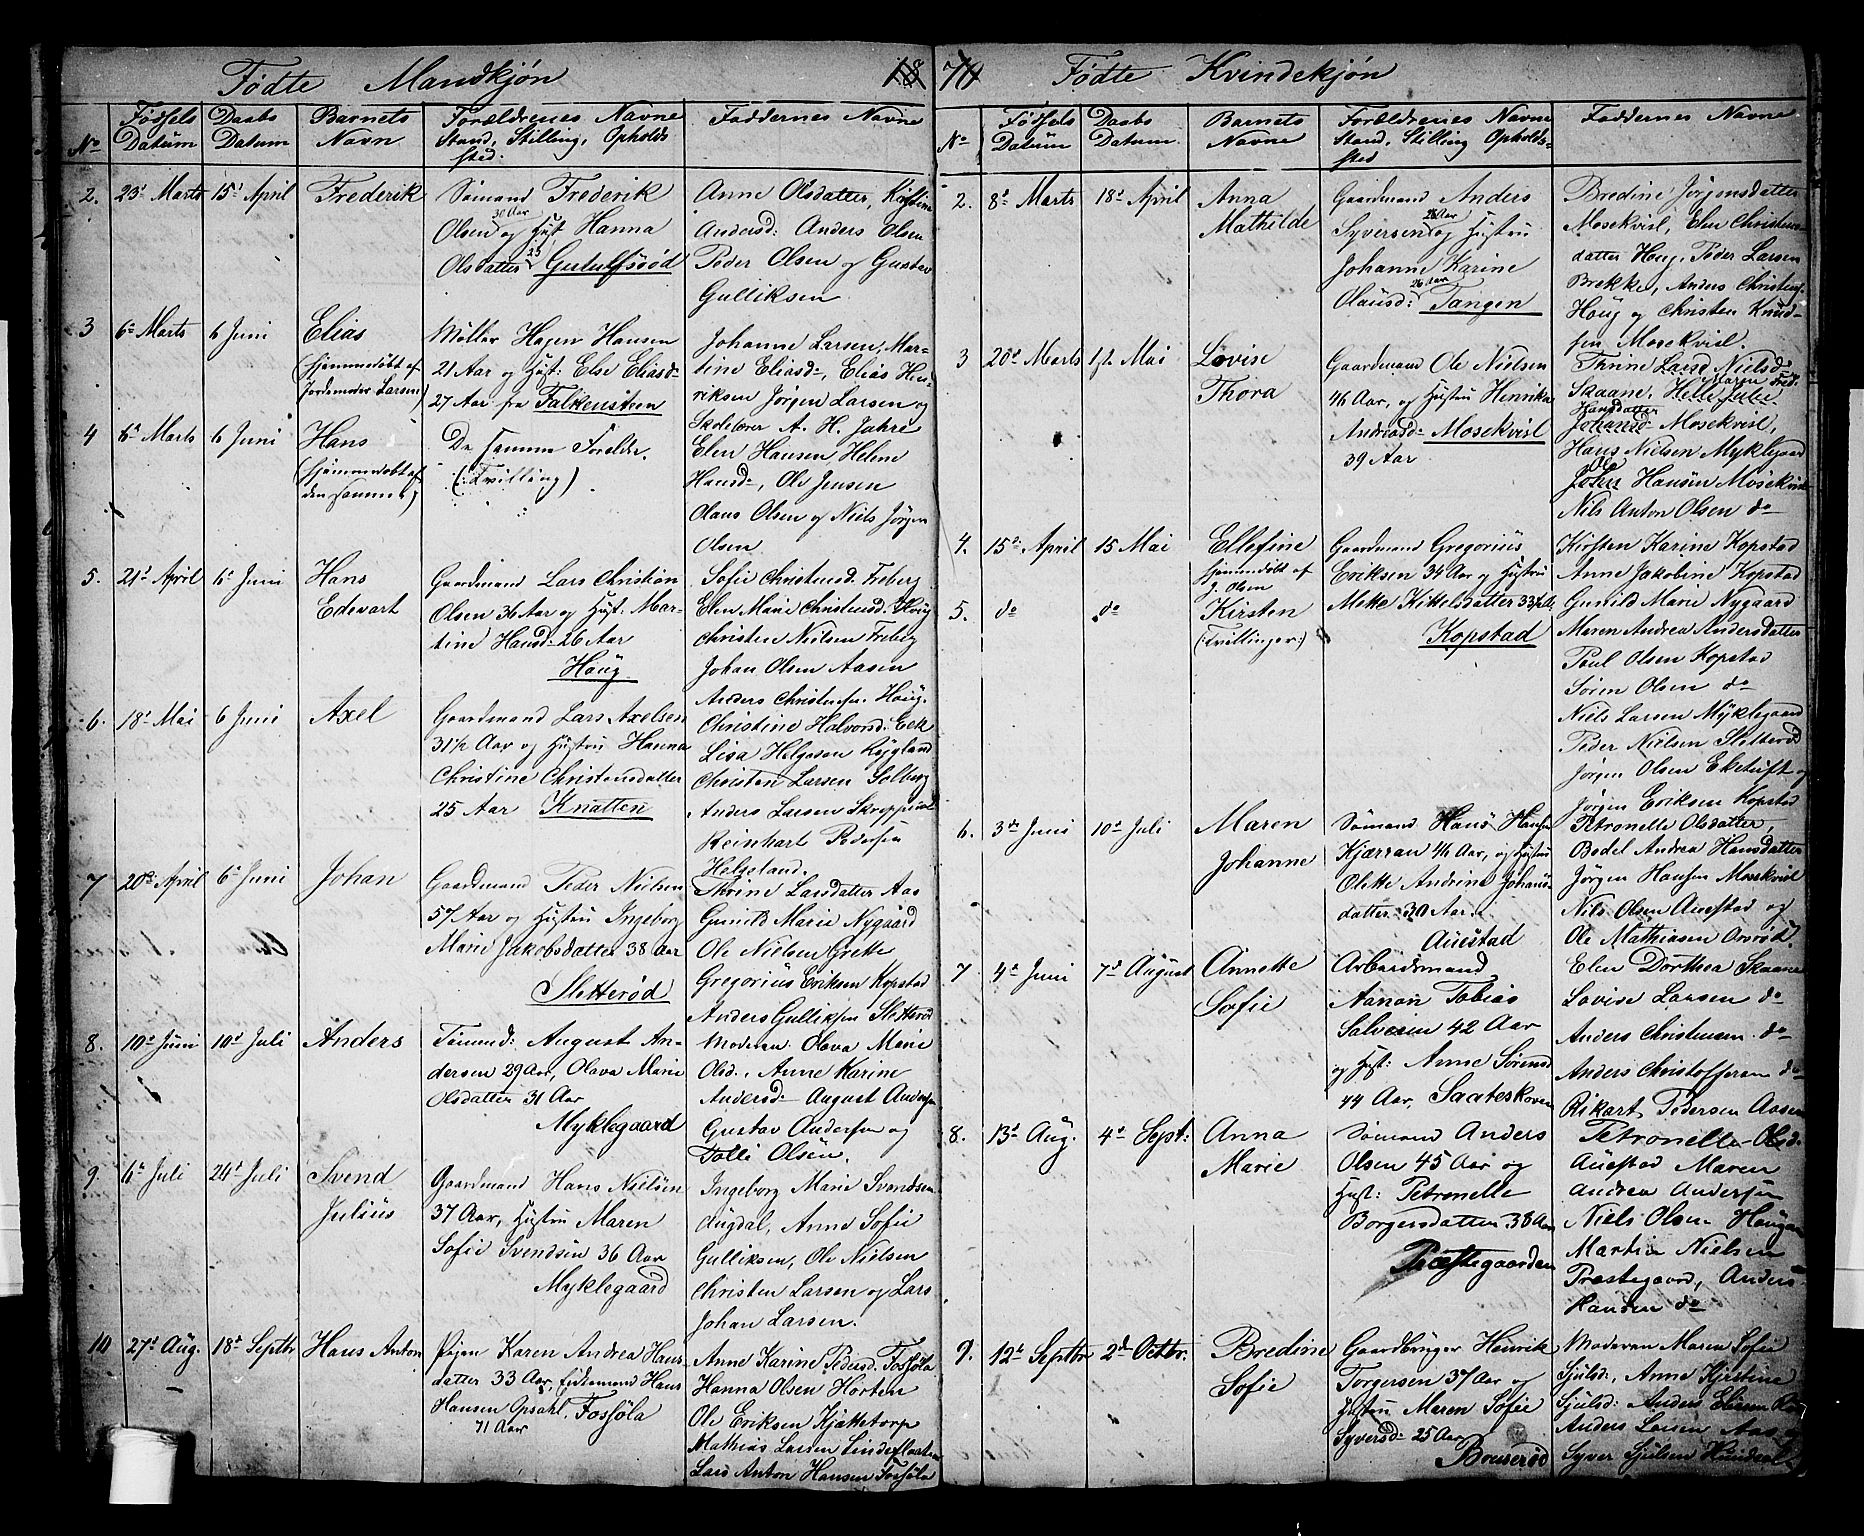 Fødte Mandkjøn
No
Fødsels Datum
Daabs Datum
Barnets Navn
Forældrenes Navne
Stand, Stilling, Opholds
sted.
Faddernes Navne
2. 23d Marts 15d April Frederik
Sømand Frederik
Olsen 30 Aar og Hust Hanna
Olsdatter 25 Gutulfsrød
Anne Olsdatter, Kirstine
Andersd: Anders Olsen
Peder Olsen og Gustav
Gulliksen
3 6te Marts 6 Juni Elias
(hjemmedøbt af
Jordemoder Larsen)
Møller Hagen Hansen
21 Aar og Hust: Else Eliasd-
27 Aar fra Falkensteen
Johanne Larsen, Mar-
tine Eliasd-, Elias Hen-
riksen Jørgen Larsen og
Skolelærer A. H. Jahre
4 6d Marts 6 Juni Hans
(hjemmedøbt af
den samme)
De samme Forældre.
(:Tvilling)
Elen Hansen, Helene
Hansd-, Ole Jensen
Olaus Olsen og Niels Jørgen
Olsen
5. 21d April 6te Juni Hans
Edevart
Gaardmand Lars Christian
Olsen 36 Aar og Hust: Mar-
tine Hansd- 26 Aar
Houg
Sofie Christensd. Freberg
Elen Marie Christensd. Houg
Christen Nielsen Freberg
Johan Olsen Aasen
Anders Christensen Houg.
6. 18d Mai 6 Juni Axel
Gaardmand Lars Axelsen
31½ Aar og Hustru Hanna
Christine Christensdatter
25 Aar Knatten
Christine Halvorsd. Eek
Lisa Helgesen Rygland
Christen Larsen Solberg
Anders Larsen
Reinhart Pedersen
Helgeland.
7 20de April 6te Juni Johan
Gaardmand Peder Nielsen
57 Aar og Hustru Ingeborg
Marie Jakobsdatter 38 Aar
Sletterød
Thrine Larsdatter Aas
Gunild Marie Nygaard
Ole Nielsen Grette
Gregorius Eriksen Kopstad
Anders Gulliksen Sletterød
8. 10d Juni 10d Juli Anders
Tømmd: August An-
dersen 29 Aar, Olava Marie
Olsdatter 31 Aar
Myklegaard
Moderen Olava Marie
Olsd., Anne Karine
Andersd- August Andersen
Gustav Andersen og
Tolli Olsen.
9. 6te Juli 24d Juli Svend
Julius
Gaardmand Hans Nielsen
37 Aar, Hustru Maren
Sofie Svendsen 36 Aar
Myklegaard
Ingeborg Marie Svendsen
Augdal, Anne Sofie
Gulliksen, Ole Nielsen
Christen Larsen og Lars
Johan Larsen.
10 27d Aug. 18d Septbr Hans Anton
Pigen Karen Andrea Hans
datter 33 Aar, Enkemand Hans
Hansen Opsahl, Fossøla
71 Aar
Anne Karine Pedersd. Fossøla
Hanna Olsen Horten
Ole Eriksen Kjøttetorp
Mathias Larsen
Lars Anton Hansen Fossøla
Fødte Kvindekjøn
No
Fødsels Datum
Daabs Datum.
Barnets Navne
Forældrenes Navne
Stand, Stilling Opholds-
sted
Faddernes Navne
2. 8d Marts 18d April Anna
Mathilde
Gaardmand Anders
Syversen 28 Aar og Hustru
Johanne Karine
Olausd: 26 Aar Tangen
Bredine Jørgensdatter
Mosekvisl, Elen Christens
datter Houg, Peder Larsen
Brekke, Anders Christens.
Houg og Christen Knud-
sen Mosekvisl.
3 20d Marts 12 Mai Lovise
Thora
Gaardmand Ole Nielsen
46 Aar, og Hustru Henrika
Andreasd- Mosekvisl
39 Aar
Thrine Larse Nielsd-
Skaane, Helle Julie
Hansdatter
Mosekvisl,
Hans Nielsen Myklegaard
Ole Hansen Mosekvisl
Nils Anton Olsen do
4. 15de April 15 Mai Ellefine
hjemmedøbt af
J. Olsen
Gaardmand Gregorius
Eriksen 34 Aar og Hustru
Mette Kittelsdatter 33
Kopstad
5. do do Kirsten
(:Tvillinger:)
Kirsten Karine Kopstad
Anne Jakobine Kopstad
Gunild Marie Nygaard
Maren Andrea Andersdatter
Paul Olsen Kopstad
Søren Olsen do
Niels Larsen Myklegaard
Peder Nielsen Sletterød
Jørgen Olsen Eketuft og
Jørgen Eriksen Kopstad
6. 3de Juni 10d Juli Maren
Johanne
Sømand Hans Hansen
Kjærran 46 Aar, og Hustru
Olette Andrine Johans
datter 30 Aar.
Auestad
Petronelle Olsdatter,
Bodel Andrea Hansdatter
Jørgen Hansen Mosekvisl
Nils Olsen Auestad og
Ole Mathiasen Ovrøt.
7 4d Juni 7d August Annette
Sofie
Arbeidsmand
Aanon Tobias
Salvesen 42 Aar
og Hust: Anne Sørensd
44 Aar, Saateskoven
Elen Dorthea Skaane
Lovise Larsen do
Anders Christensen do
Anders Christoffersen do
Rikart Pedersen Aasen
8. 13d Aug. 4d Sept: Anna
Marie
Sømand Anders
Olsen 45 Aar og
Hust: Petronelle
Borgersdatter 38 Aar
Præstegaarden
Petronelle Olsd.
Auestad Maren
Andrea Andersen
Niels Olsen Haugan
Martin Nielsen
Præstegaard, Anders
Hansen do
9. 12d Septbr 2d Octbr. Bredine
Sofie
Gaardbruger Henrik
Torgersen 37 Aar og
Hustru Maren Sofie
Syversd- 25 Aar
Bonserød
Moderen Maren Sofie
Sjulsd:, Anne Kjirstine
Sjulsd: Anders
Anders Larsen Aas og
Syver Sjulsen